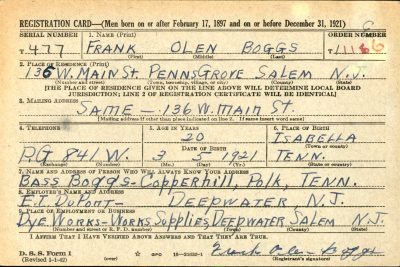 REGISTRATION CARD—(Men born on or after February 17, 1897 and on or before December 31, 1921)
SERIAL NUMBER 1. NAME (Print) ORDER NUMBER
T477 FRANK OLEN BOGGS 11166
(First) (Middle) (Last)
2. PLACE OF RESIDENCE (Print)
136 W. MAIN St. PENNSGROVE SALEM N.J.
(Number and street) (Town, township, village, or city) (County) (State)
[THE PLACE OF RESIDENCE GIVEN ON THE LINE ABOVE WILL DETERMINE LOCAL BOARD
JURISDICTION; LINE 2 OF REGISTRATION CERTIFICATE WILL BE IDENTICAL]
3. MAILING ADDRESS
SAME - 136 W. MAIN St.
[Mailing address if other than place indicated on line 2. If same insert word same]
4. TELEPHONE 5. AGE IN YEARS 6. PLACE OF BIRTH
20 ISABELLA
DATE OF BIRTH (Town or county)
P.G 841W. 3 5 1921 TENN.
(Exchange) (Number) (Mo.) (Day) (Yr.) (State or country)
7. NAME AND ADDRESS OF PERSON WHO WILL ALWAYS KNOW YOUR ADDRESS
BASS BOGGS - COPPERHILL, POLK, TENN.
8. EMPLOYER'S NAME AND ADDRESS
E.I. DUPONT - DEEPWATER, N.J.
9. PLACE OF EMPLOYMENT OR BUSINESS
DYE WORKS - WORKS SUPPLIES, DEEPWATER SALEM N.J.
(Number and street or R. F. D. number) (Town) (County) (State)
I AFFIRM THAT I HAVE VERIFIED ABOVE ANSWERS AND THAT THEY ARE TRUE.
D. S. S. Form 1 GPO 16-21630-1 Frank Olen Boggs
(Revised 1-1-42) (over) (Registrant's signature)